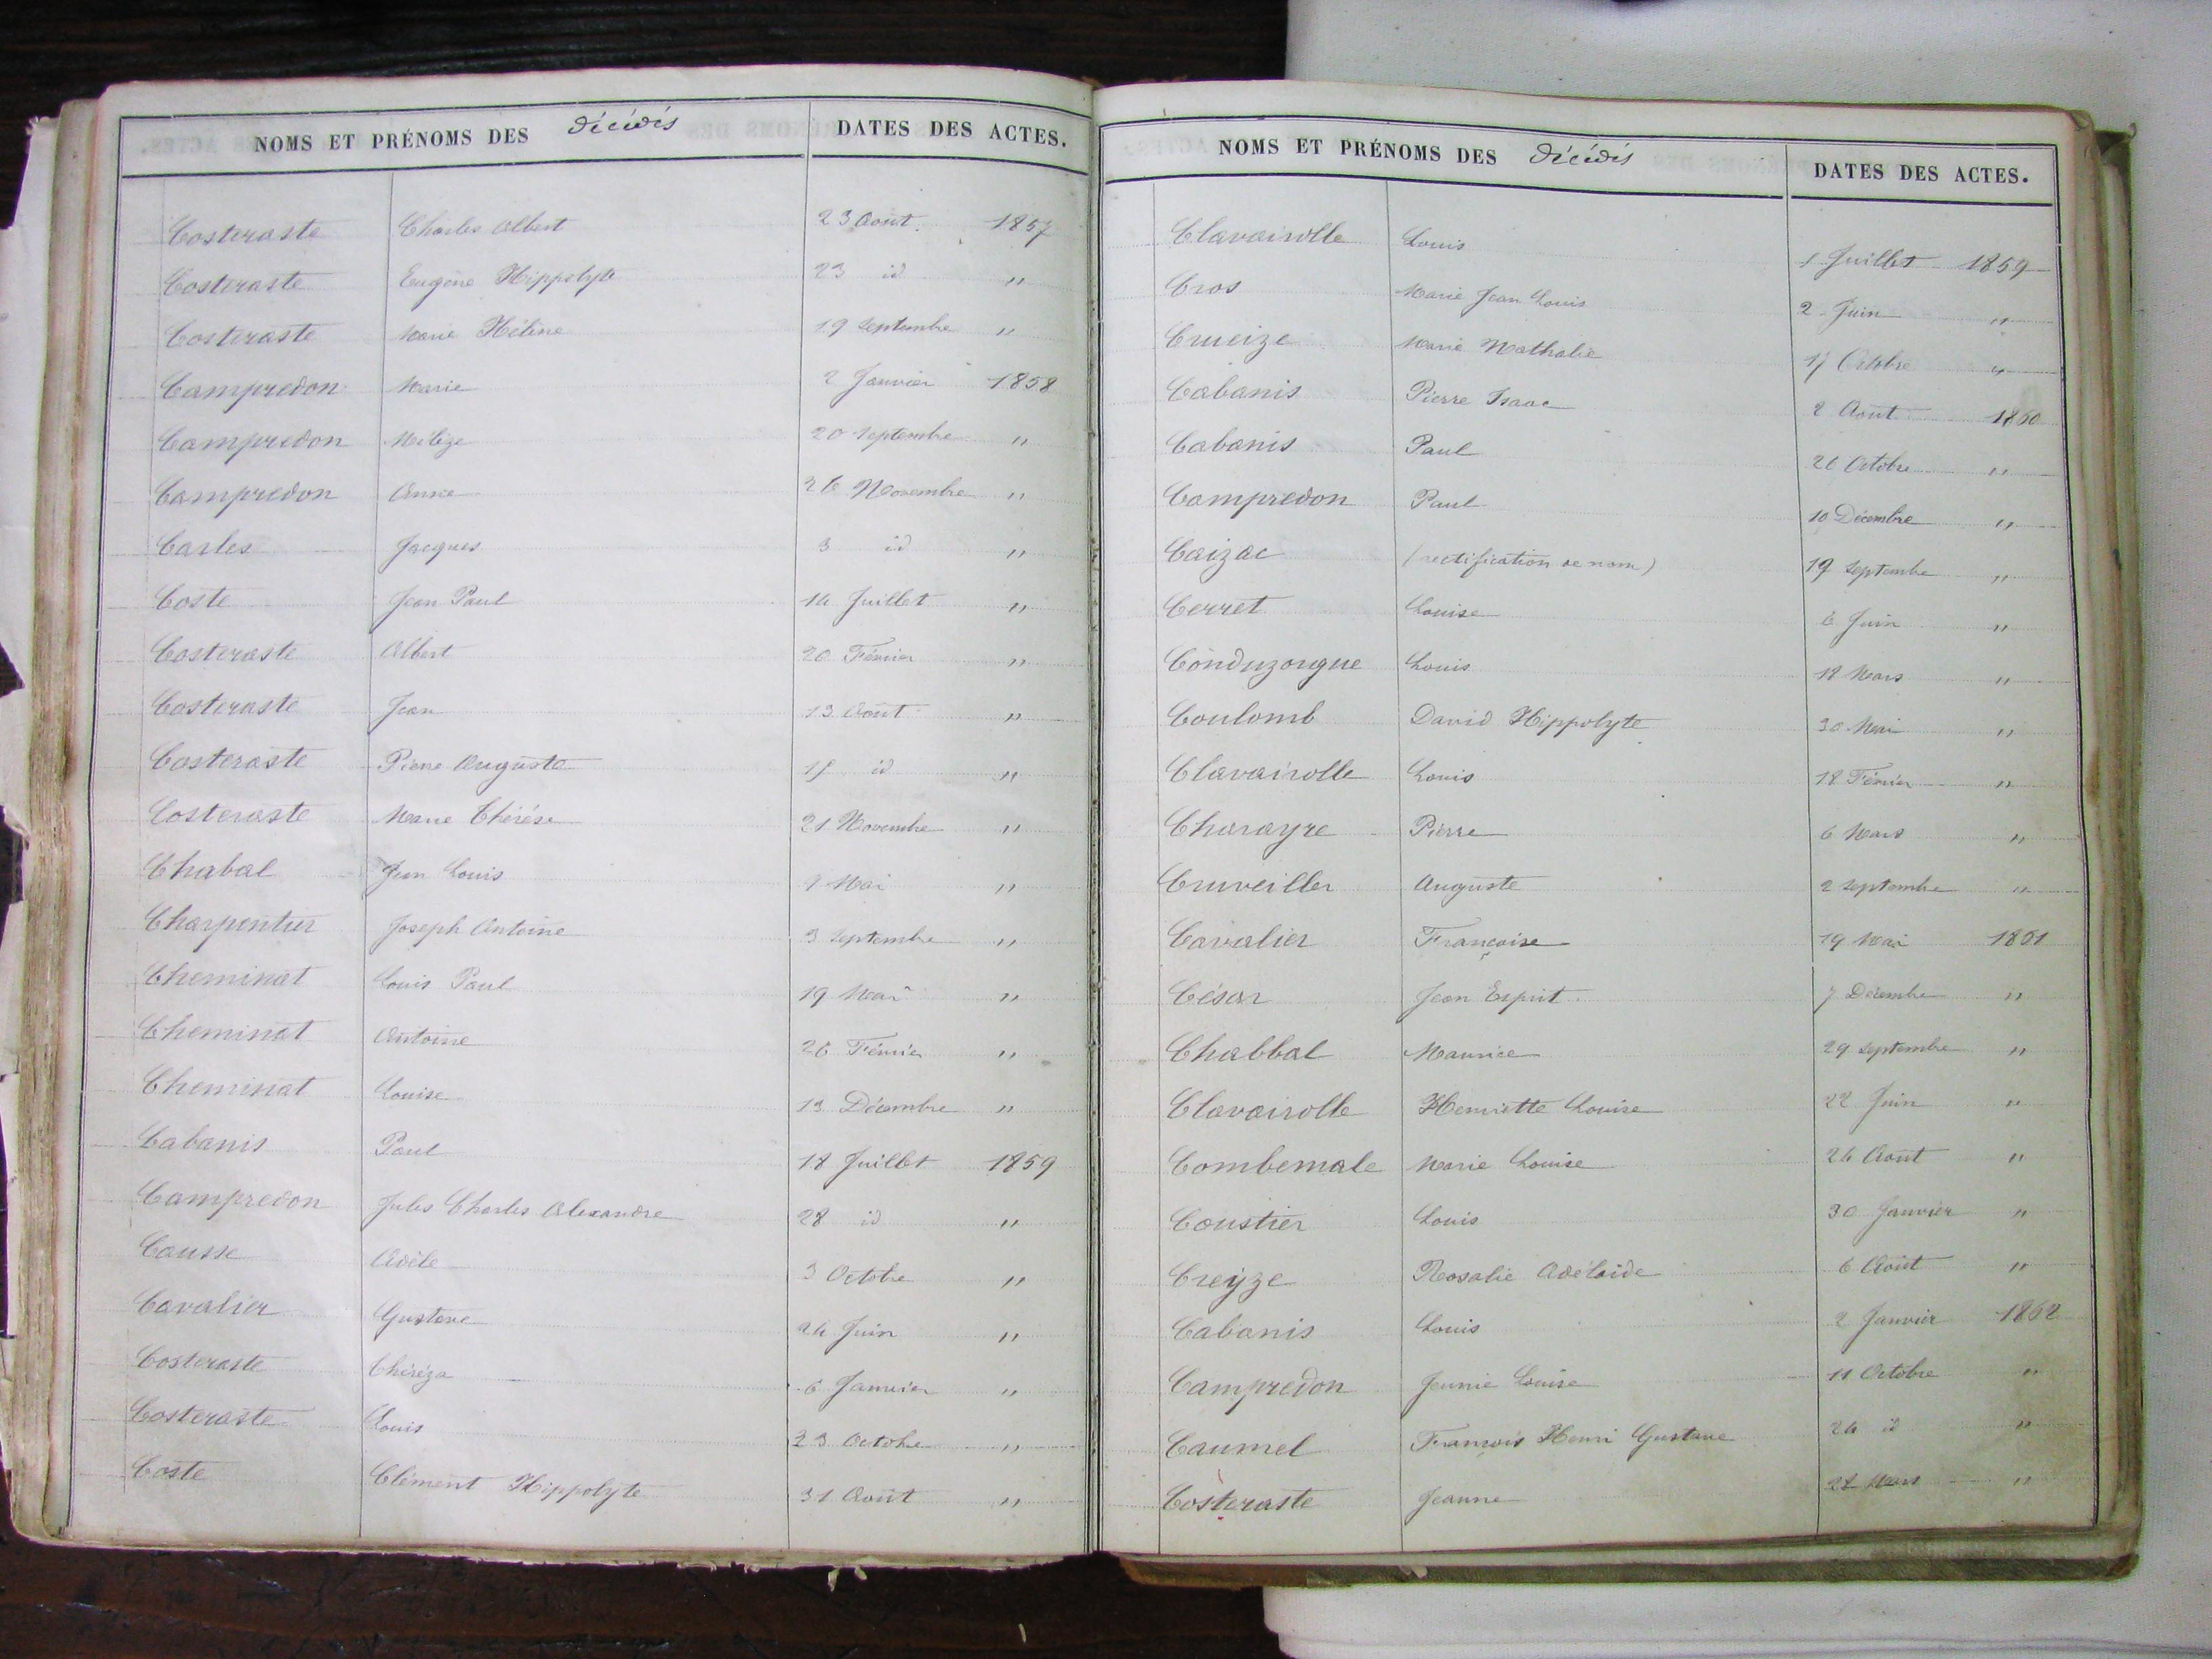 NOMS ET PRÉNOMS DES décédés DATES DES ACTES.
Costeraste Charles Albert 23 Août 1857
Costeraste Eugène Hippolyte 23 id "
Costeraste Marie Hélène 19 Septembre "
Campredon Marie 2 Janvier 1858
Campredon Mélize 20 Septembre "
Campredon Anne 26 Novembre "
Carles Jacques 3 id "
Coste Jean Paul 14 Juillet "
Costeraste Albert 20 Février "
Costeraste Jean 13 Août "
Costeraste Pierre Auguste id "
Costeraste Marie Thérèse 21 Novembre "
Chabal Jean Louis 9 Mai "
Charpentier Joseph Antoine 3 Septembre "
Cheminat Louis Paul 19 Mai "
Cheminat Antoine 26 Février "
Cheminat Louise 13 Décembre "
Cabanis Paul 18 Juillet 1859
Campredon Jules Charles Alexandre 28 id "
Causse Adèle 3 Octobre "
Cavalier Gustave 24 Juin "
Costeraste Théréza 6 Janvier "
Costeraste Louis 23 Octobre "
Coste Clément Hippolyte 31 Août "
NOMS ET PRÉNOMS DES décédés DATES DES ACTES.
Clavairolle Louis 1 Juillet 1859
Cros Marie Jean Louis 2 Juin "
Crueize Marie Nathalie 17 Octobre "
Cabanis Pierre Isaac 2 Août 1860
Cabanis Paul 26 Octobre "
Campredon Paul 10 Décembre "
Caizac (rectification de nom) 19 Septembre "
Cerret Louise 6 Juin "
Conduzorgue Louis 18 Mars "
Coulomb David Hippolyte 30 Mai "
Clavairolle Louis 18 Février "
Charayre Pierre 6 Mars "
Cruveiller Auguste 2 Septembre "
Cavalier Françoise 19 Mai 1861
César Jean Esprit 7 Décembre "
Chabbal Maurice 29 Septembre "
Clavairolle Henriette Louise 22 Juin "
Combemale Marie Louise 26 Août "
Coustier Louis 30 Janvier "
Creyze Rosalie Adélaïde 6 Août "
Cabanis Louis 2 Janvier 1862
Campredon Jennie Louise 11 Octobre "
Caumel François Henri Gustave 24 id "
Costeraste Jeanne Mars "